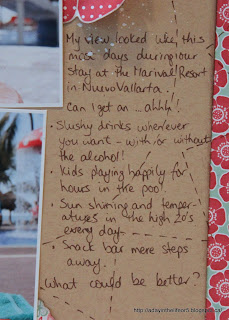 My view looked like this
most days during our
stay at the Marival Resort
in Nuevo Vallarta.
Can I get an ...ahhh!
• Slushy drinks whenever
you want - with or without
the alcohol!
• Kids playing happily for
hours in the pool.
• Sun shining and temper-
atures in the high 20's
every day
• Snack bar mere steps
away!
What could be better?